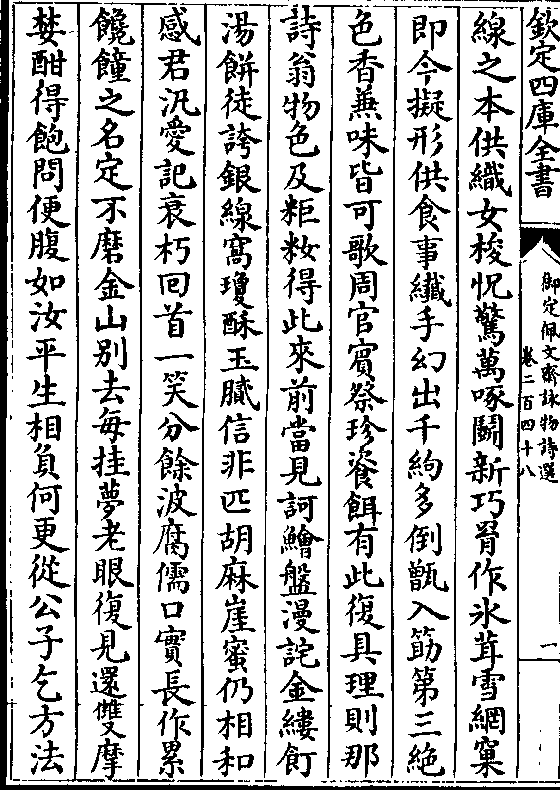 欽定四庫全書
御定佩文齋詠物詩選
卷二百四十八
一
線之本供織女梭怳驚萬啄鬭新巧胃作氷茸雪網窠
即今擬形供食事纖手幻出千絇多倒甑入筯第三絶
色香兼味皆可歌周官賓祭珍餈餌有此復具理則那
詩翁物色及粔籹得此來前當見訶鱠盤漫詫金縷飣
湯餅徒誇銀線窩瓊酥玉膩信非匹胡麻崖蜜仍相和
感君汎愛記衰朽回首一笑分餘波腐儒口實長作累
饞饘之名定不磨金山别去每挂夢老眼復見還雙摩
婪酣得飽問便腹如汝平生相負何更從公子乞方法